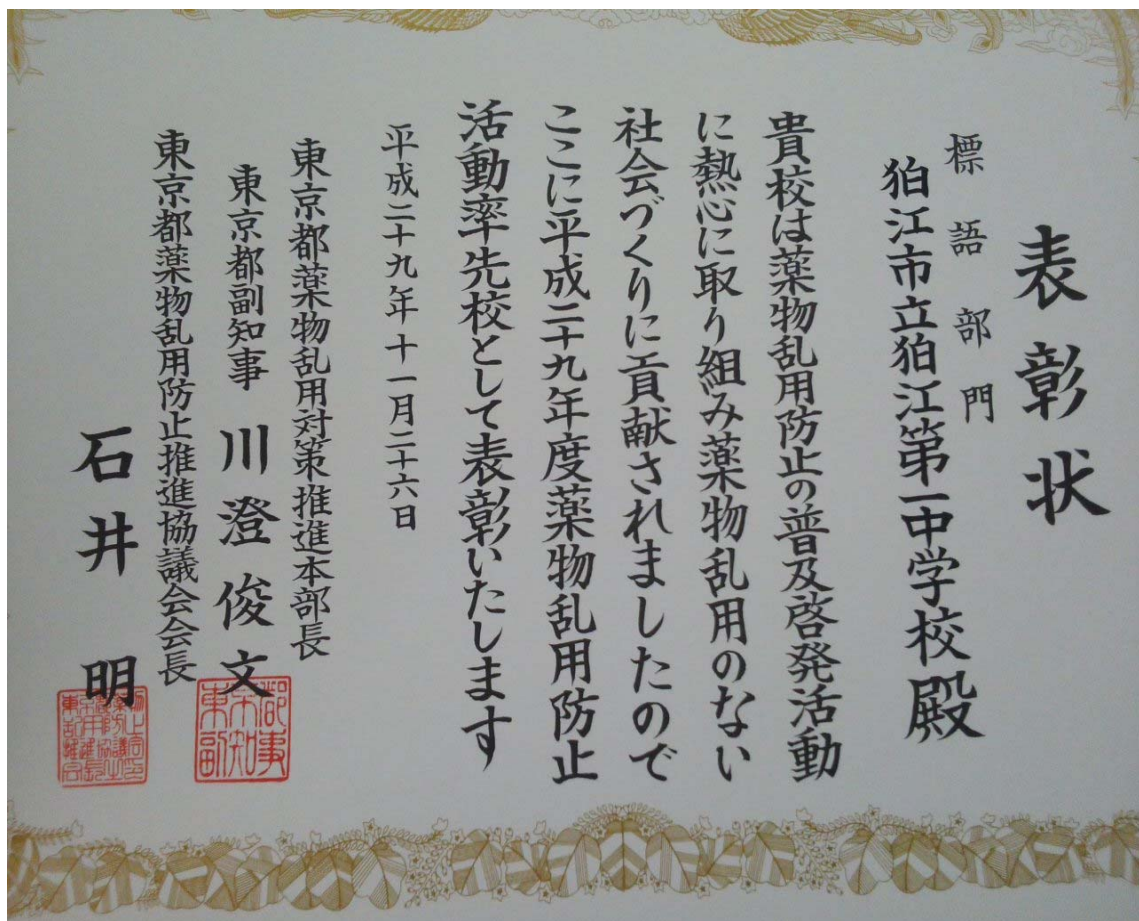 表彰状
標語部門
狛江市立狛江第一中学校殿
貴校は薬物乱用防止の普及啓発活動
に熱心に取り組み薬物乱用のない
社会づくりに貢献されましたので
ここに平成二十九年度薬物乱用防止
活動率先校として表彰いたします
平成二十九年十一月二十六日
東京都薬物乱用対策推進本部長
東京都副知事 川澄俊文
東京都薬物乱用防止推進協議会会長
石井 明